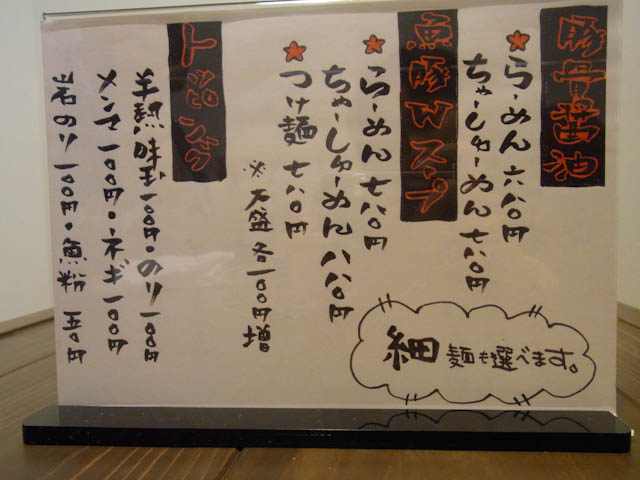 豚骨醤油
★らーめん 六八〇円
ちゃーしゅーめん 七八〇円
魚豚Wスープ
★らーめん 七八〇円
ちゃーしゅーめん 八八〇円
★つけ麺 七八〇円
※大盛各一〇〇円増
トッピング
半熟味玉 一〇〇円・のり 一〇〇円
メンマ 一〇〇円・ネギ 一〇〇円
岩のり 一〇〇円・魚粉 五〇円
細麺も選べます。